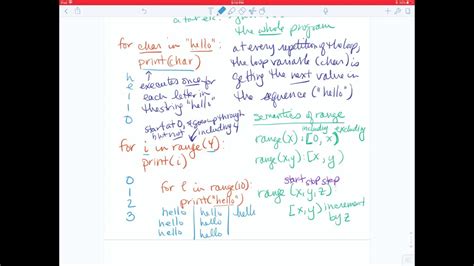 the whole program
for char in "hello":
print(char)
h
e
l
l
o
executes once for
each letter in
the string "hello"
at every repetition of the loop,
the loop variable (char) is
getting the next value in
the sequence ("hello")
start at 0, & going through
but not including 4
for i in range(4):
print(i)
0
1
2
3
semantics of range
including excluding
range(x): [0, x)
range(x,y): [x, y)
start stop step
range (x,y,z)
[x,y) increment
by z
for l in range(10):
print("hello")
hello hello hello
hello hello
hello hello